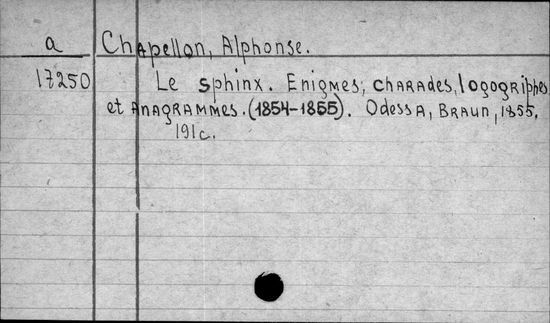 a Chapellon, Alphonse.
17250 Le sphinx. Enigmes, charades, logogriphes
et anagrammes. (1854-1855). Odessa, Braun, 1855.
191c.